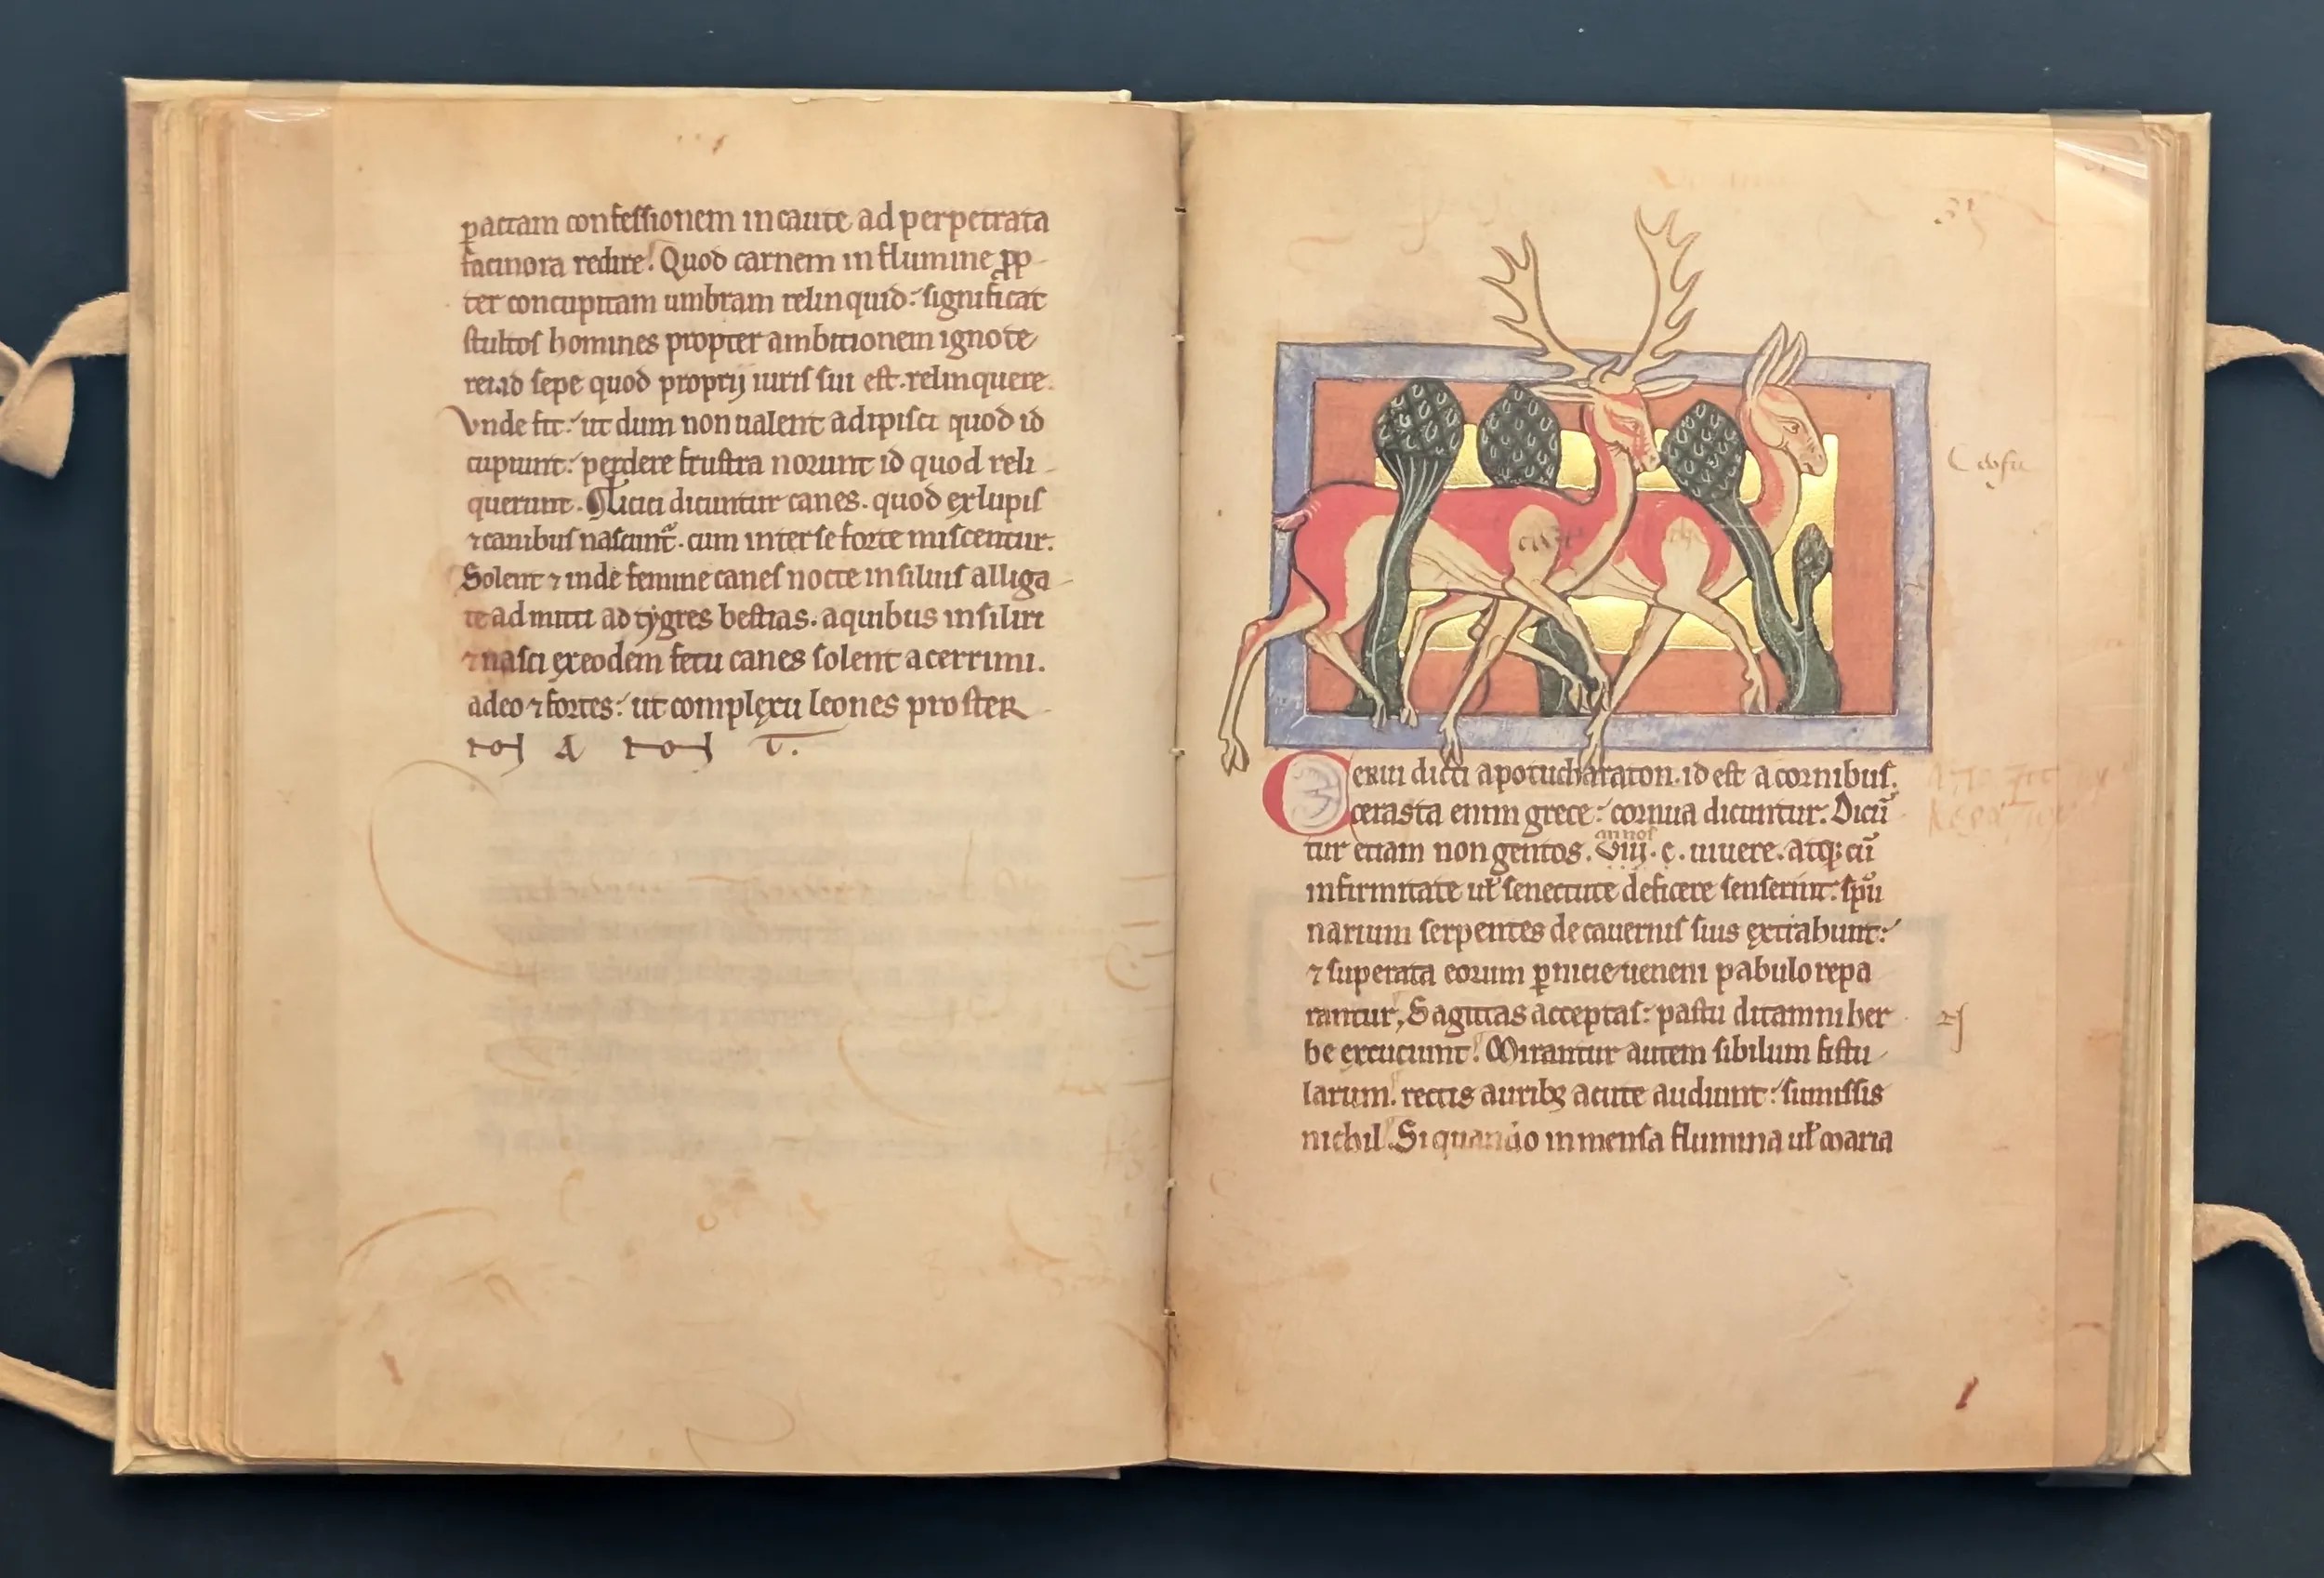 ꝑactam confessionem incaute ad perpetrata
facinora redire. Quod carnem in flumine ꝓp
ter concupitam umbram relinquid: significat
stultos homines propter ambitionem ignote
rei. id sepe quod proprij iuris sui est. relinquere.
Vnde fit: ut dum non ualent adipisci quod id
cupiunt: perdere frustra norunt id quod reli
querunt. Licici dicuntur canes. quod ex lupis
⁊ canibus nascunt᷑. cum inter se forte miscentur.
Solent ⁊ inde femine canes nocte in siluis alliga
te ad mitti ad tygres bestias. a quibus insiliri
⁊ nasci ex eodem fetu canes solent acerrimi.
adeo ⁊ fortes: ut complexu leones proster
N A N T.
Cerui dicti apotucharaton. id est a cornibus.
cerasta enim grece: cornua dicuntur. Dicū
annos
tur etiam non gentos. uiii. c. uiuere. atq; cū
infirmitate ul̓ senectute deficere senserint: spū
narium serpentes de cauernis suis extrahunt:
⁊ superata eorum ꝑnicie ueneni pabulo repa
rantur, Sagittas acceptas: pastu ditamni her
be excuciunt. Mirantur autem sibilum fistu
larum. rectis aurib; acute audiunt: sumissis
nichil. Si quando inmensa flumina ul̓ maria